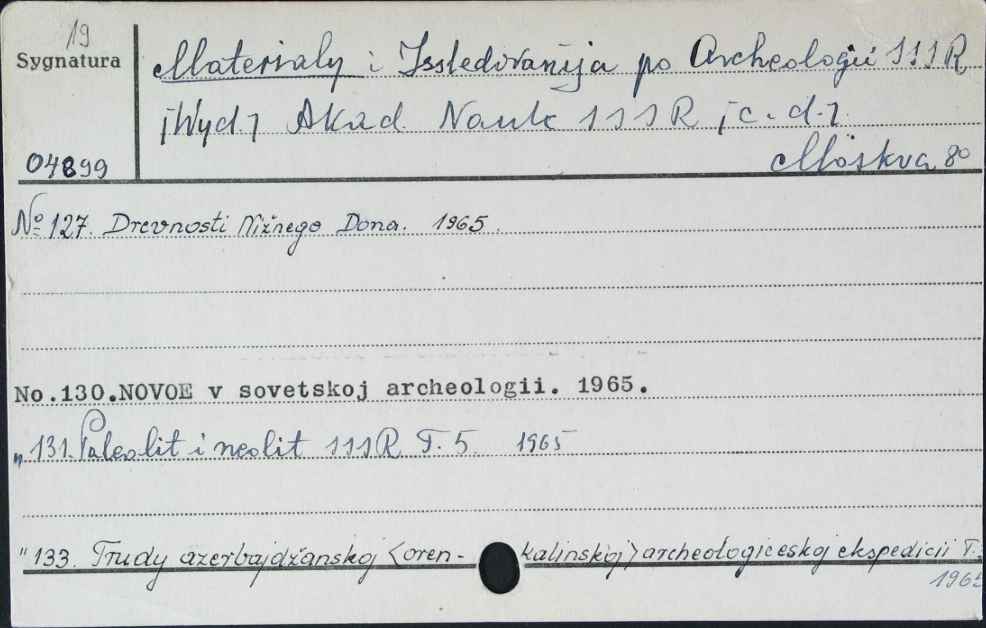 19
Sygnatura
04899
Materialy i Issledovanija po Archeologii SSSR
[Wyd.] Akad. Nauk SSSR [c.d.]
Moskva 8°
No 127. Drevnosti Nižnego Dona. 1965.
No.130.NOVOE v sovetskoj archeologii. 1965.
" 131. Paleolit i neolit SSSR T. 5. 1965
" 133. Trudy azerbajdžanskoj <oren-kalinskoj> archeologiceskoj ekspedicii T.
1965